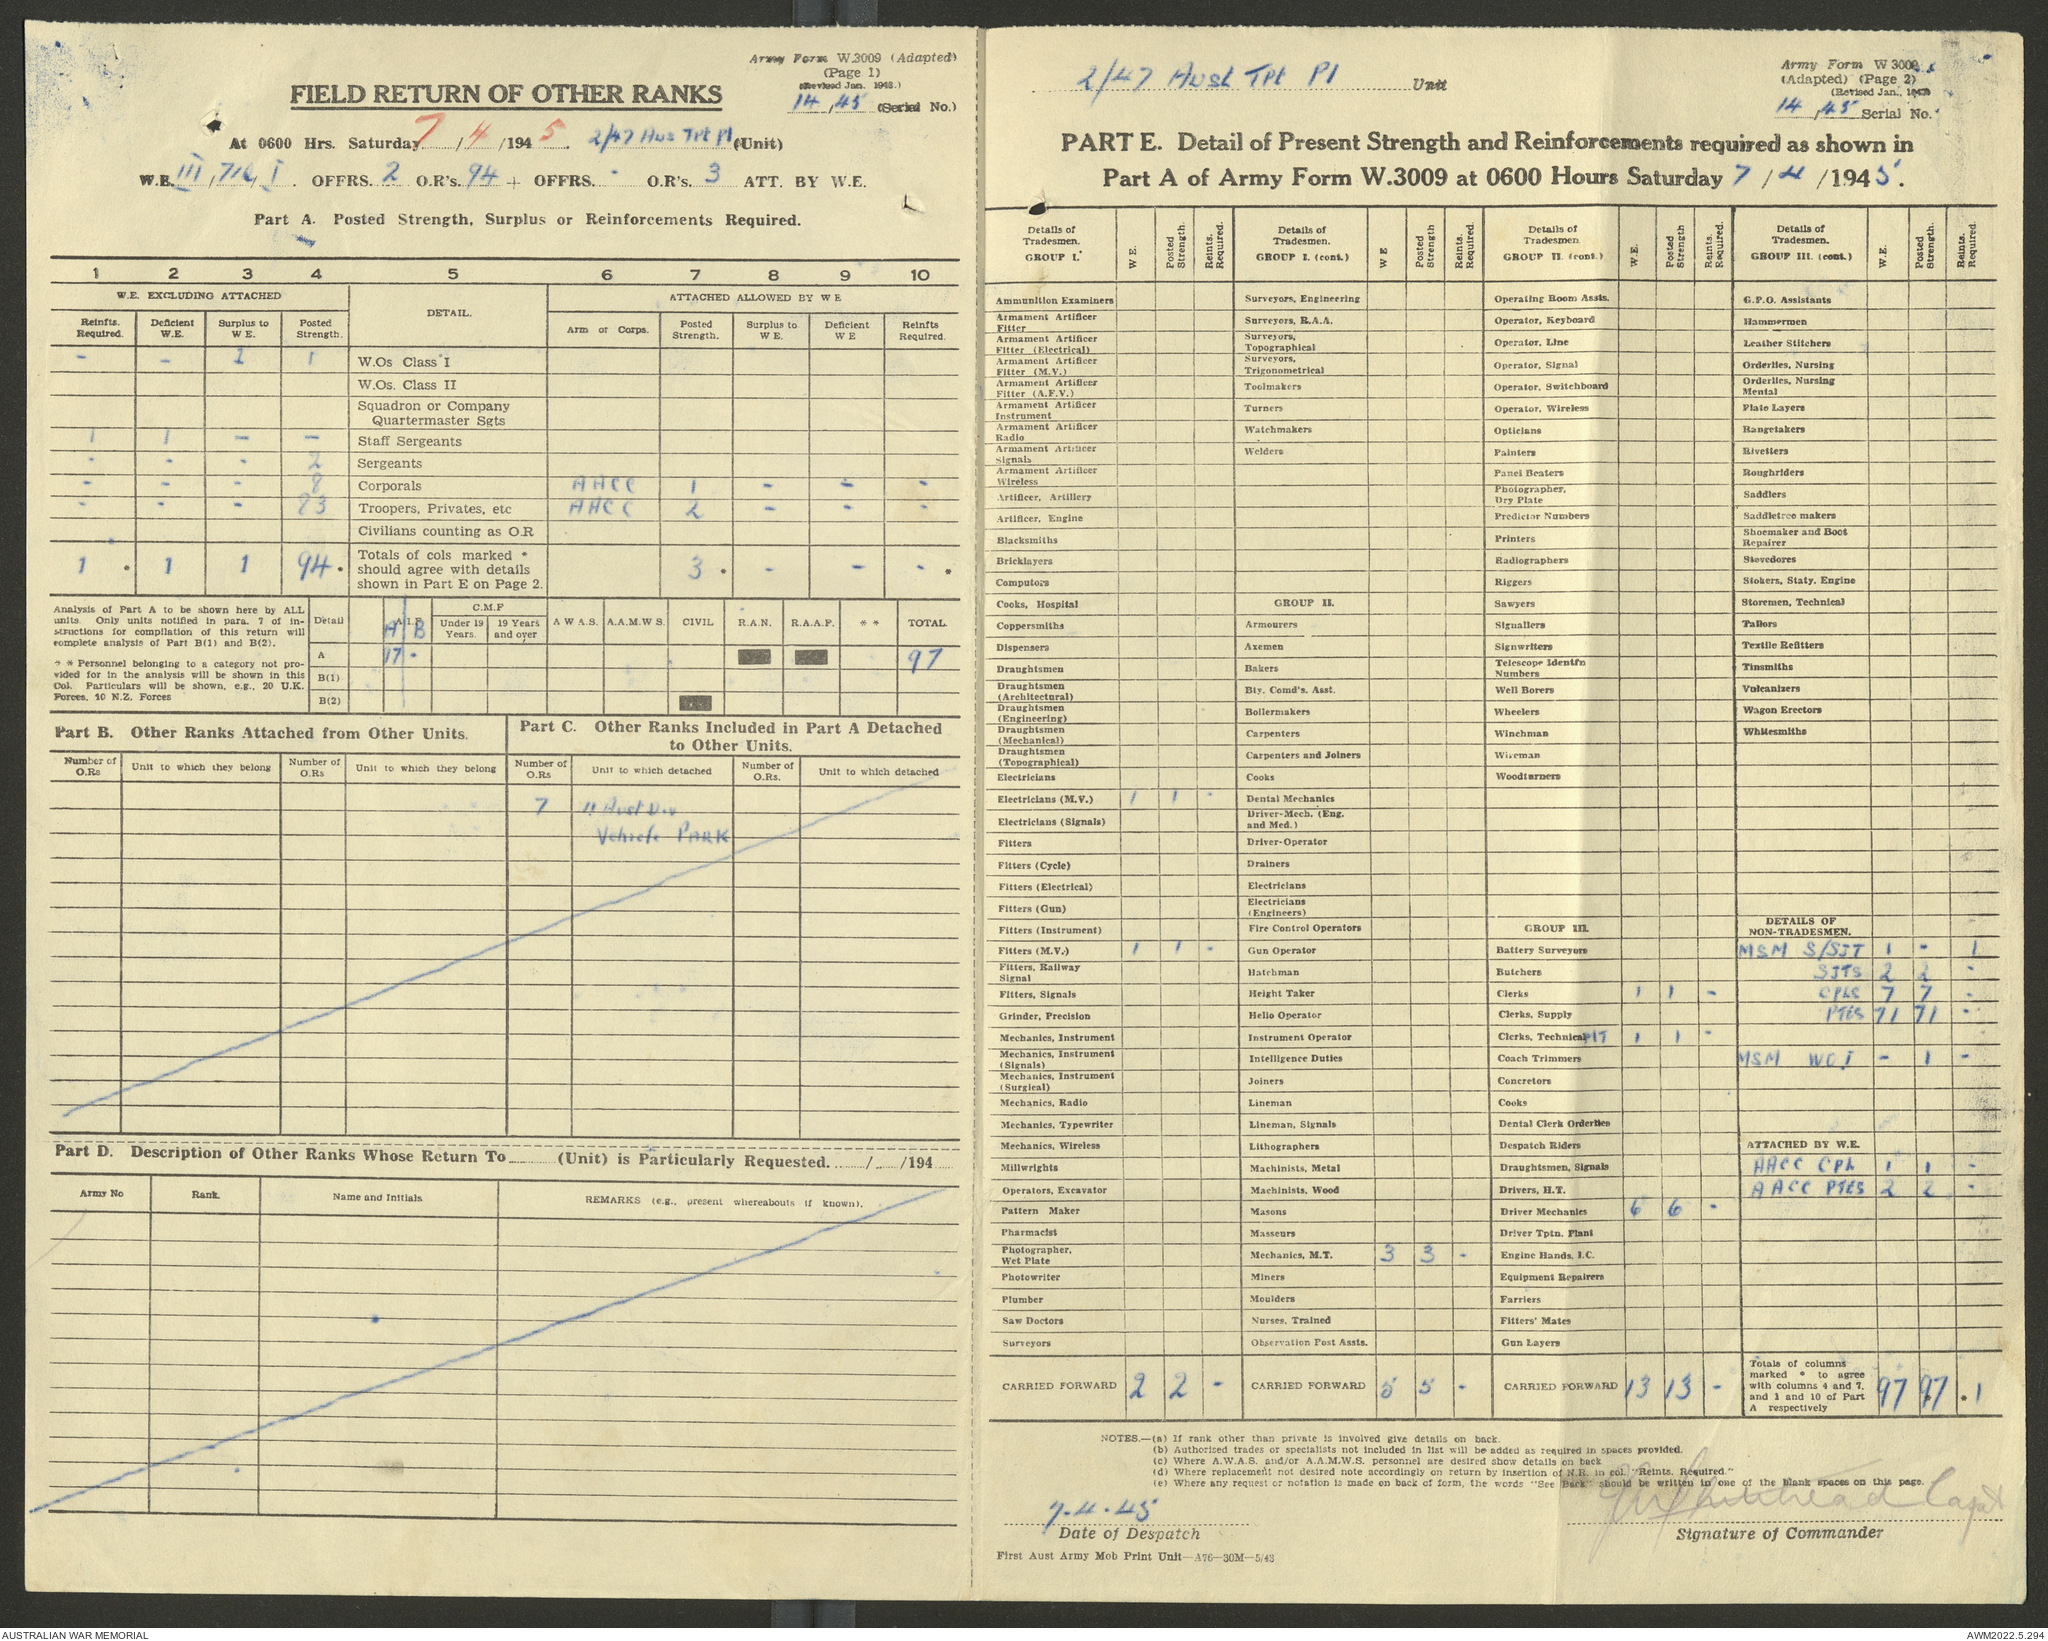 Army Form W.3009 (Adapted)
(Page 1)
(Revised Jan. 1943.)
14, 45 (Serial No.)
FIELD RETURN OF OTHER RANKS
At 0600 Hrs. Saturday 7/4/1945. 2/47 Aus Tpt Pl (Unit)
W.E. III, 716, I. OFFRS. 2 O.R's. 94 + OFFRS. - O.R's. 3 ATT. BY W.E.
Part A. Posted Strength, Surplus or Reinforcements Required.
1 2 3 4 5 6 7 8 9 10
W.E. EXCLUDING ATTACHED DETAIL. ATTACHED ALLOWED BY W E
Reinfts. Required. Deficient W.E. Surplus to W E. Posted Strength. Arm or Corps. Posted Strength. Surplus to W E. Deficient W E Reinfts Required.
- - 1 1 W.Os Class I
W.Os. Class II
Squadron or Company
Quartermaster Sgts
1 1 - - Staff Sergeants
- - - 2 Sergeants
- - - 8 Corporals AACC 1 - - -
- - - 83 Troopers, Privates, etc AACC 2 - - -
Civilians counting as O.R
1 * 1 1 94 * Totals of cols marked * should agree with details shown in Part E on Page 2. 3 * - - - *
Analysis of Part A to be shown here by ALL
units. Only units notified in para. 7 of in-
structions for compilation of this return will
complete analysis of Part B(1) and B(2).
* * Personnel belonging to a category not pro-
vided for in the analysis will be shown in this
Col. Particulars will be shown, e.g., 20 U.K.
Forces, 10 N.Z. Forces
Detail A.I.F. A B C.M.F Under 19 Years. 19 Years and over A W A S. A.A.M.W S. CIVIL R.A.N. R.A.A.F. * * TOTAL.
A 17 - 97
B(1)
B(2)
Part B. Other Ranks Attached from Other Units.
Part C. Other Ranks Included in Part A Detached
to Other Units.
Number of O.Rs Unit to which they belong Number of O.Rs Unit to which they belong Number of O.Rs Unit to which detached Number of O.Rs. Unit to which detached
7 11 Aust Div
Vehicle PARK
Part D. Description of Other Ranks Whose Return To (Unit) is Particularly Requested. / /194
Army No Rank. Name and Initials REMARKS (e.g., present whereabouts if known).
2/47 Aust Tpt Pl Unit
Army Form W 3009
(Adapted) (Page 2)
(Revised Jan., 1943
14, 45 Serial No.
PART E. Detail of Present Strength and Reinforcements required as shown in
Part A of Army Form W.3009 at 0600 Hours Saturday 7/4/1945.
Details of Tradesmen. GROUP I. W E. Posted Strength. Reints. Required.
Ammunition Examiners
Armament Artificer Fitter
Armament Artificer Fitter (Electrical)
Armament Artificer Fitter (M.V.)
Armament Artificer Fitter (A.F.V.)
Armament Artificer Instrument
Armament Artificer Radio
Armament Artificer Signals
Armament Artificer Wireless
Artificer, Artillery
Artificer, Engine
Blacksmiths
Bricklayers
Computors
Cooks, Hospital
Coppersmiths
Dispensers
Draughtsmen
Draughtsmen (Architectural)
Draughtsmen (Engineering)
Draughtsmen (Mechanical)
Draughtsmen (Topographical)
Electricians
Electricians (M.V.) 1 1 -
Electricians (Signals)
Fitters
Fitters (Cycle)
Fitters (Electrical)
Fitters (Gun)
Fitters (Instrument)
Fitters (M.V.) 1 1 -
Fitters, Railway Signal
Fitters, Signals
Grinder, Precision
Mechanics, Instrument
Mechanics, Instrument (Signals)
Mechanics, Instrument (Surgical)
Mechanics, Radio
Mechanics, Typewriter
Mechanics, Wireless
Millwrights
Operators, Excavator
Pattern Maker
Pharmacist
Photographer, Wet Plate
Photowriter
Plumber
Saw Doctors
Surveyors
CARRIED FORWARD 2 2 -
Details of Tradesmen. GROUP I. (cont.) W E Posted Strength Reints. Required.
Surveyors, Engineering
Surveyors, R.A.A.
Surveyors, Topographical
Surveyors, Trigonometrical
Toolmakers
Turners
Watchmakers
Welders
GROUP II.
Armourers
Axemen
Bakers
Bty. Comd's. Asst.
Boilermakers
Carpenters
Carpenters and Joiners
Cooks
Dental Mechanics
Driver-Mech. (Eng. and Med.)
Driver-Operator
Drainers
Electricians
Electricians (Engineers)
Fire Control Operators
Gun Operator
Hatchman
Height Taker
Helio Operator
Instrument Operator
Intelligence Duties
Joiners
Lineman
Lineman, Signals
Lithographers
Machinists, Metal
Machinists, Wood
Masons
Masseurs
Mechanics, M.T. 3 3 -
Miners
Moulders
Nurses, Trained
Observation Post Assts.
CARRIED FORWARD 5 5 -
Details of Tradesmen. GROUP II. (cont.) W.E. Posted Strength Reints. Required.
Operating Room Assts.
Operator, Keyboard
Operator, Line
Operator, Signal
Operator, Switchboard
Operator, Wireless
Opticians
Painters
Panel Beaters
Photographer, Dry Plate
Predictor Numbers
Printers
Radiographers
Riggers
Sawyers
Signallers
Signwriters
Telescope Identfn Numbers
Well Borers
Wheelers
Winchman
Wireman
Woodturners
GROUP III.
Battery Surveyors
Butchers
Clerks 1 1 -
Clerks, Supply
Clerks, Technical 1 1 -
Coach Trimmers
Concretors
Cooks
Dental Clerk Orderlies
Despatch Riders
Draughtsmen, Signals
Drivers, H.T.
Driver Mechanics 6 6 -
Driver Tptn. Plant
Engine Hands, I.C.
Equipment Repairers
Farriers
Fitters' Mates
Gun Layers
CARRIED FORWARD 13 13 -
Details of Tradesmen. GROUP III. (cont.) W.E. Posted Strength. Reints. Required.
G.P.O. Assistants
Hammermen
Leather Stitchers
Orderlies, Nursing
Orderlies, Nursing Mental
Plate Layers
Rangetakers
Rivetters
Roughriders
Saddlers
Saddletree makers
Shoemaker and Boot Repairer
Stevedores
Stokers, Staty. Engine
Storemen, Technical
Tailors
Textile Refitters
Tinsmiths
Vulcanizers
Wagon Erectors
Whitesmiths
DETAILS OF NON-TRADESMEN.
MSM S/SJT 1 - 1
SJTS 2 2 -
CPLS 7 7 -
PTES 71 71 -
MSM WO I - 1 -
ATTACHED BY W.E.
AACC CPL 1 1 -
AACC PTES 2 2 -
Totals of columns marked * to agree with columns 4 and 7, and 1 and 10 of Part A respectively 97 97 * 1
NOTES.—(a) If rank other than private is involved give details on back.
(b) Authorised trades or specialists not included in list will be added as required in spaces provided.
(c) Where A.W.A.S. and/or A.A.M.W.S. personnel are desired show details on back
(d) Where replacement not desired note accordingly on return by insertion of N.R. in col. "Reints. Required."
(e) Where any request or notation is made on back of form, the words "See Back" should be written in one of the blank spaces on this page.
7.4.45
Date of Despatch
Whitehead Capt
Signature of Commander
First Aust Army Mob Print Unit—A76—30M—5/43
AUSTRALIAN WAR MEMORIAL
AWM2022.5.294